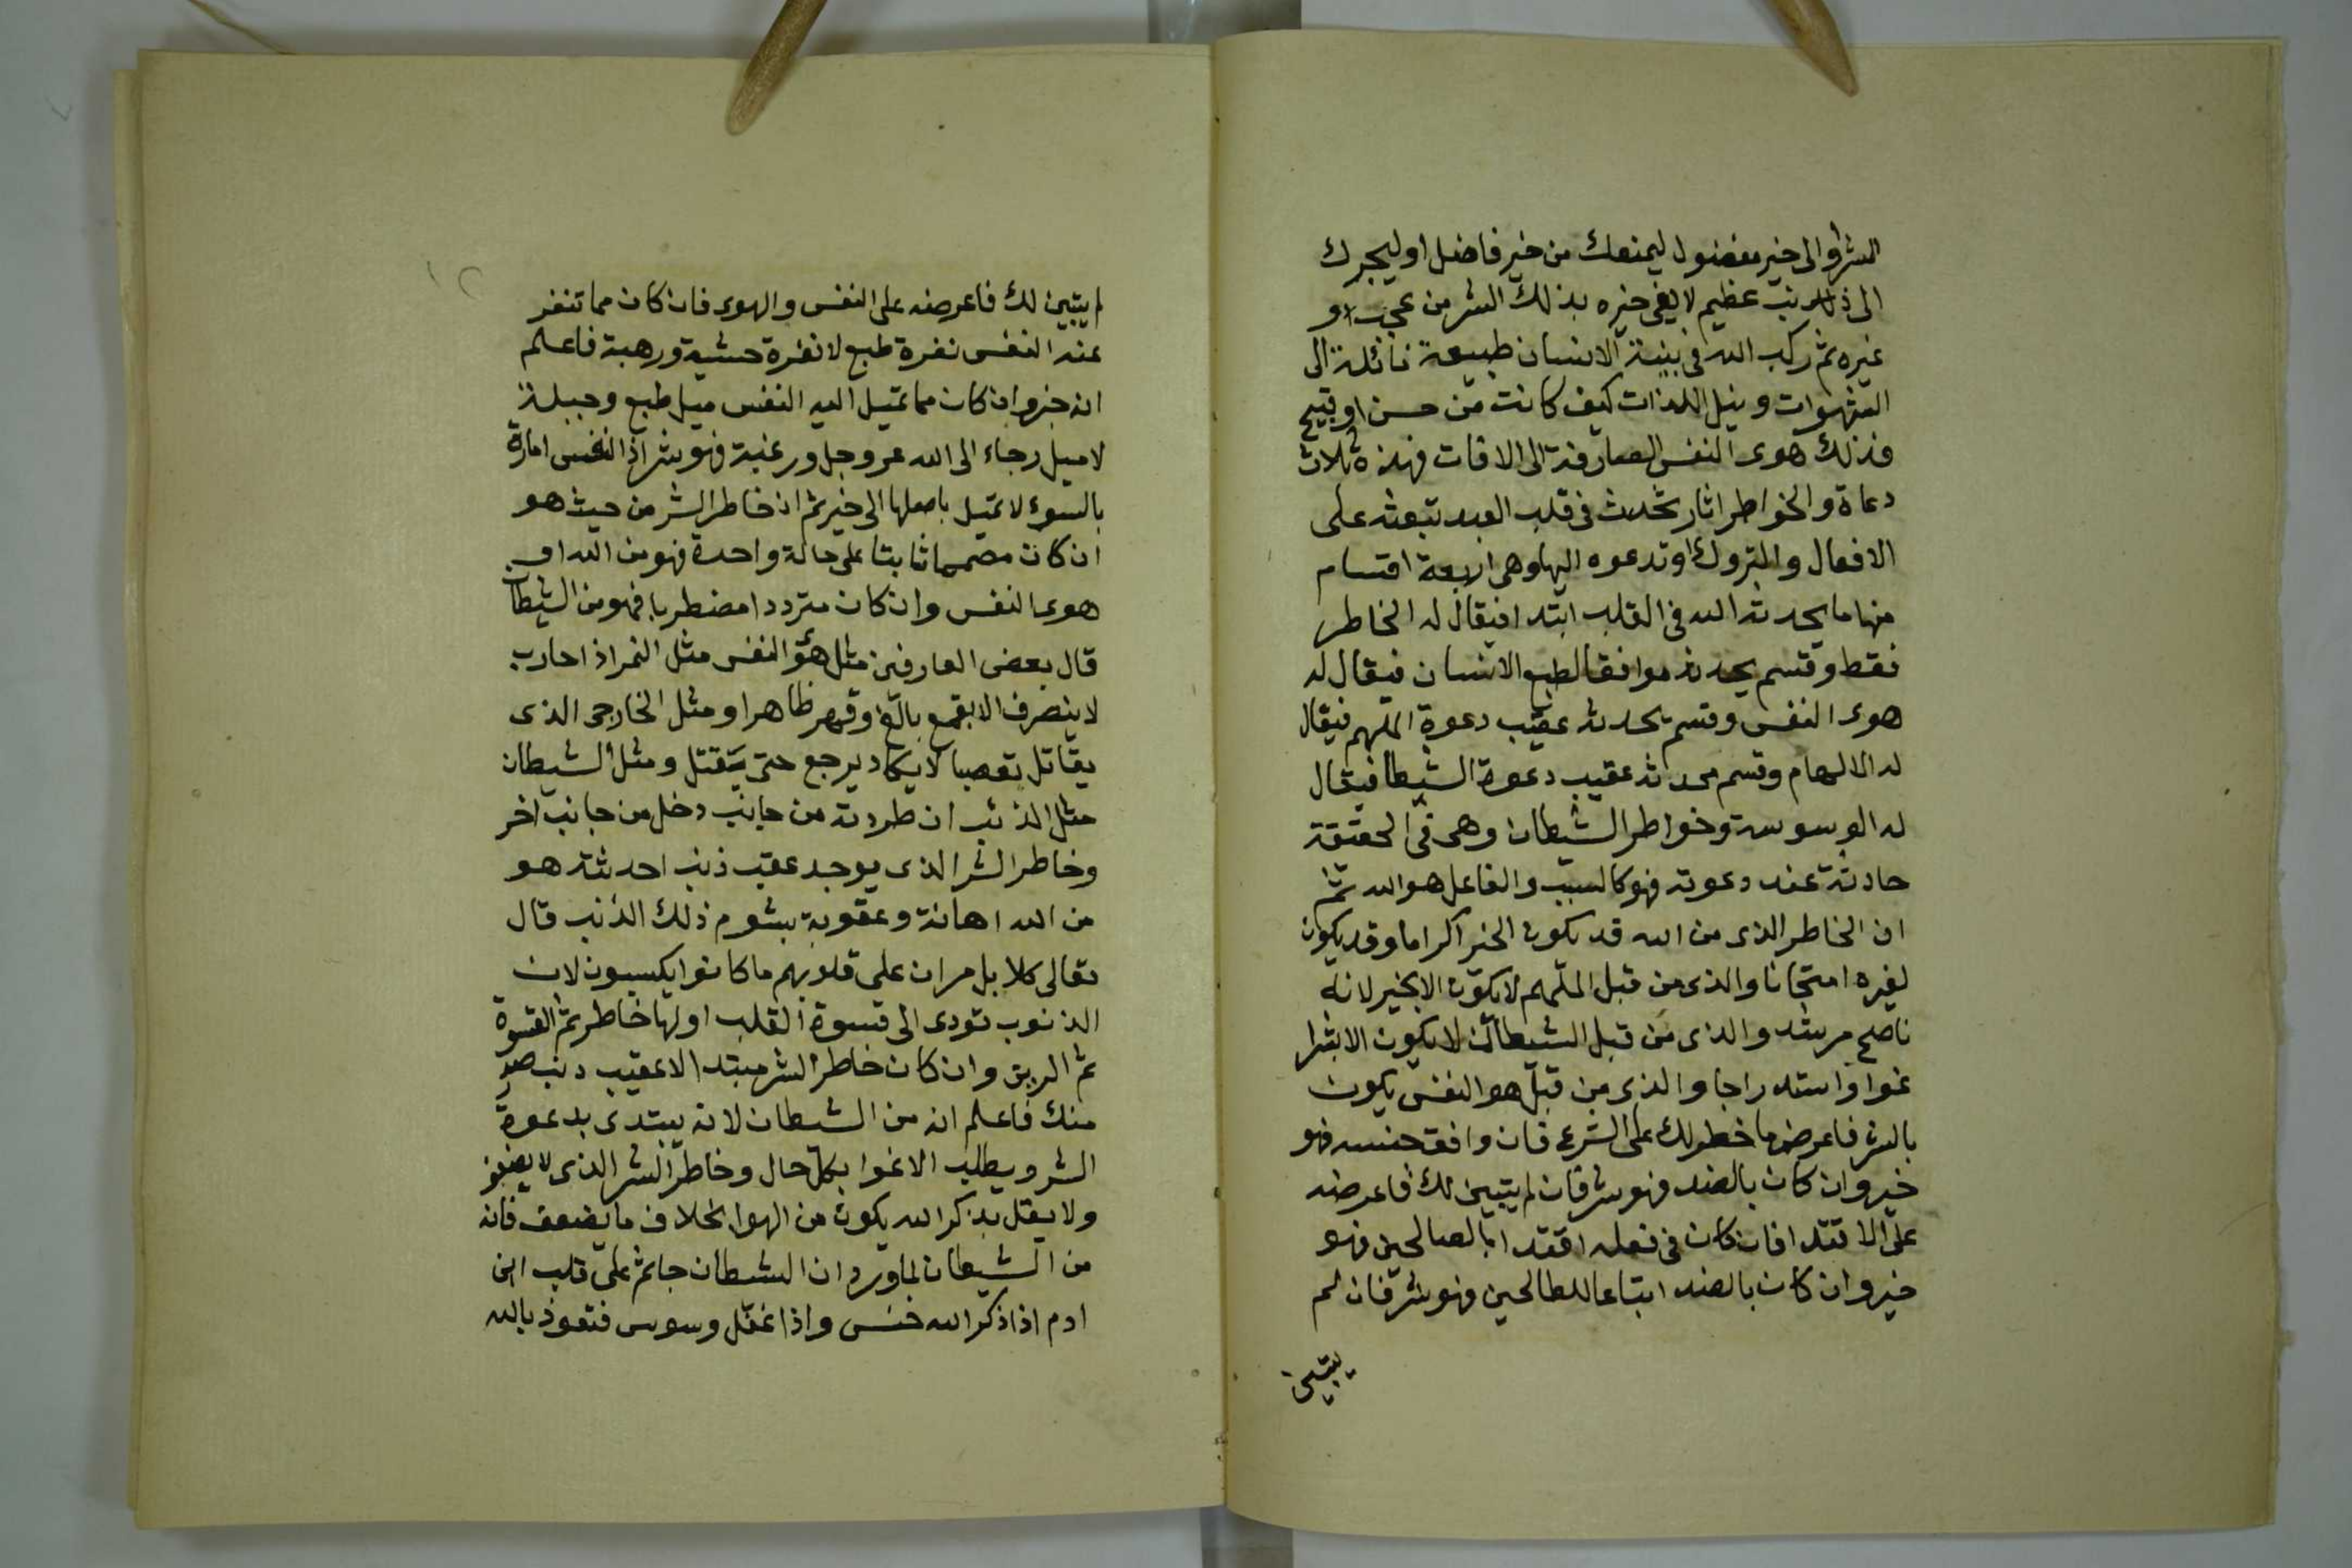 الشر او الى خير مفضول ليمنعك من خير فاضل او ليجرك
الى ذنب عظيم لا يفي خيره بذلك الشر من عجب او
غيره ثم ركب الله في بنية الانسان طبيعة مائلة الى
الشهوات ونيل اللذات كيف كانت من حسن او قبيح
فذلك هوى النفس الصارفة الى الافات فهذه ثلاث
دعاة والخواطر اثار تحدث في قلب العبد تبعثه على
الافعال والتروك وتدعوه اليها وهي اربعة اقسام
منها ما يحدثه الله في القلب ابتدا فيقال له الخاطر
فقط وقسم يحدثه موافقا لطبع الانسان فيقال له
هوى النفس وقسم يحدثه عقيب دعوة الملهم فيقال
له الالهام وقسم يحدثه عقيب دعوة الشيطان فيقال
له الوسوسة وخواطر الشيطان وهي في الحقيقة
حادثة عند دعوته فهو كالسبب والفاعل هو الله ثم
ان الخاطر الذي من الله قد يكون الخير اكراما وقد يكون
لغيره امتحانا والذي من قبل الملهم لا يكون الا بخير لانه
ناصح مرشد والذي من قبل الشيطان لا يكون الا بشر
غوا واستدراجا والذي من قبل هو النفس يكون
بالشر فاعرض ما خطر لك على الشرع فان وافق جنسه فهو
خير وان كان بالضد فهو شر فان لم يتبين لك فاعرضه
على الاقتدا فان كان في فعله اقتدا بالصالحين فهو
خير وان كان بالضد اتباعا للطالحين فهو شر فان لم
يتبين
١٢
لم يتبين لك فاعرضه على النفس والهوى فان كان مما تنفر
عنه النفس نفرة طبع لا نفرة خشية ورهبة فاعلم
انه خير وان كان مما تميل اليه النفس ميل طبع وجبلة
لا ميل رجاء الى الله عز وجل ورغبة فهو شر اذ النفس امارة
بالسوء لا تميل باصلها الى خير ثم ان خاطر الشر من حيث هو
ان كان مصمما ثابتا على حالة واحدة فهو من الله او
هوى النفس وان كان مترددا مضطربا فهو من الشيطان
قال بعض العارفين مثل هوى النفس مثل النمر اذا حارب
لا ينصرف الا بقمع بالغ وقهر ظاهر او مثل الخارجي الذي
يقاتل تعصبا لا يكاد يرجع حتى يقتل ومثل الشيطان
مثل الذئب ان طردته من جانب دخل من جانب اخر
وخاطر الشر الذي يوجد عقب ذنب احدثته هو
من الله اهانة وعقوبة بشوم ذلك الذنب قال
تعالى كلا بل ران على قلوبهم ما كانوا يكسبون لان
الذنوب تودي الى قسوة القلب اولها خاطر ثم القسوة
ثم الرين وان كان خاطر الشر مبتدا لا عقيب ذنب صدر
منك فاعلم انه من الشيطان لانه يبتدي بدعوة
الشر ويطلب الاغوا بكل حال وخاطر الشر الذي لا يضعف
ولا يقل بذكر الله يكون من الهوا بخلاف ما يضعف فانه
من الشيطان لما ورد ان الشيطان جاثم على قلب ابن
ادم اذا ذكر الله خنس واذا غفل وسوس فتعوذ بالله